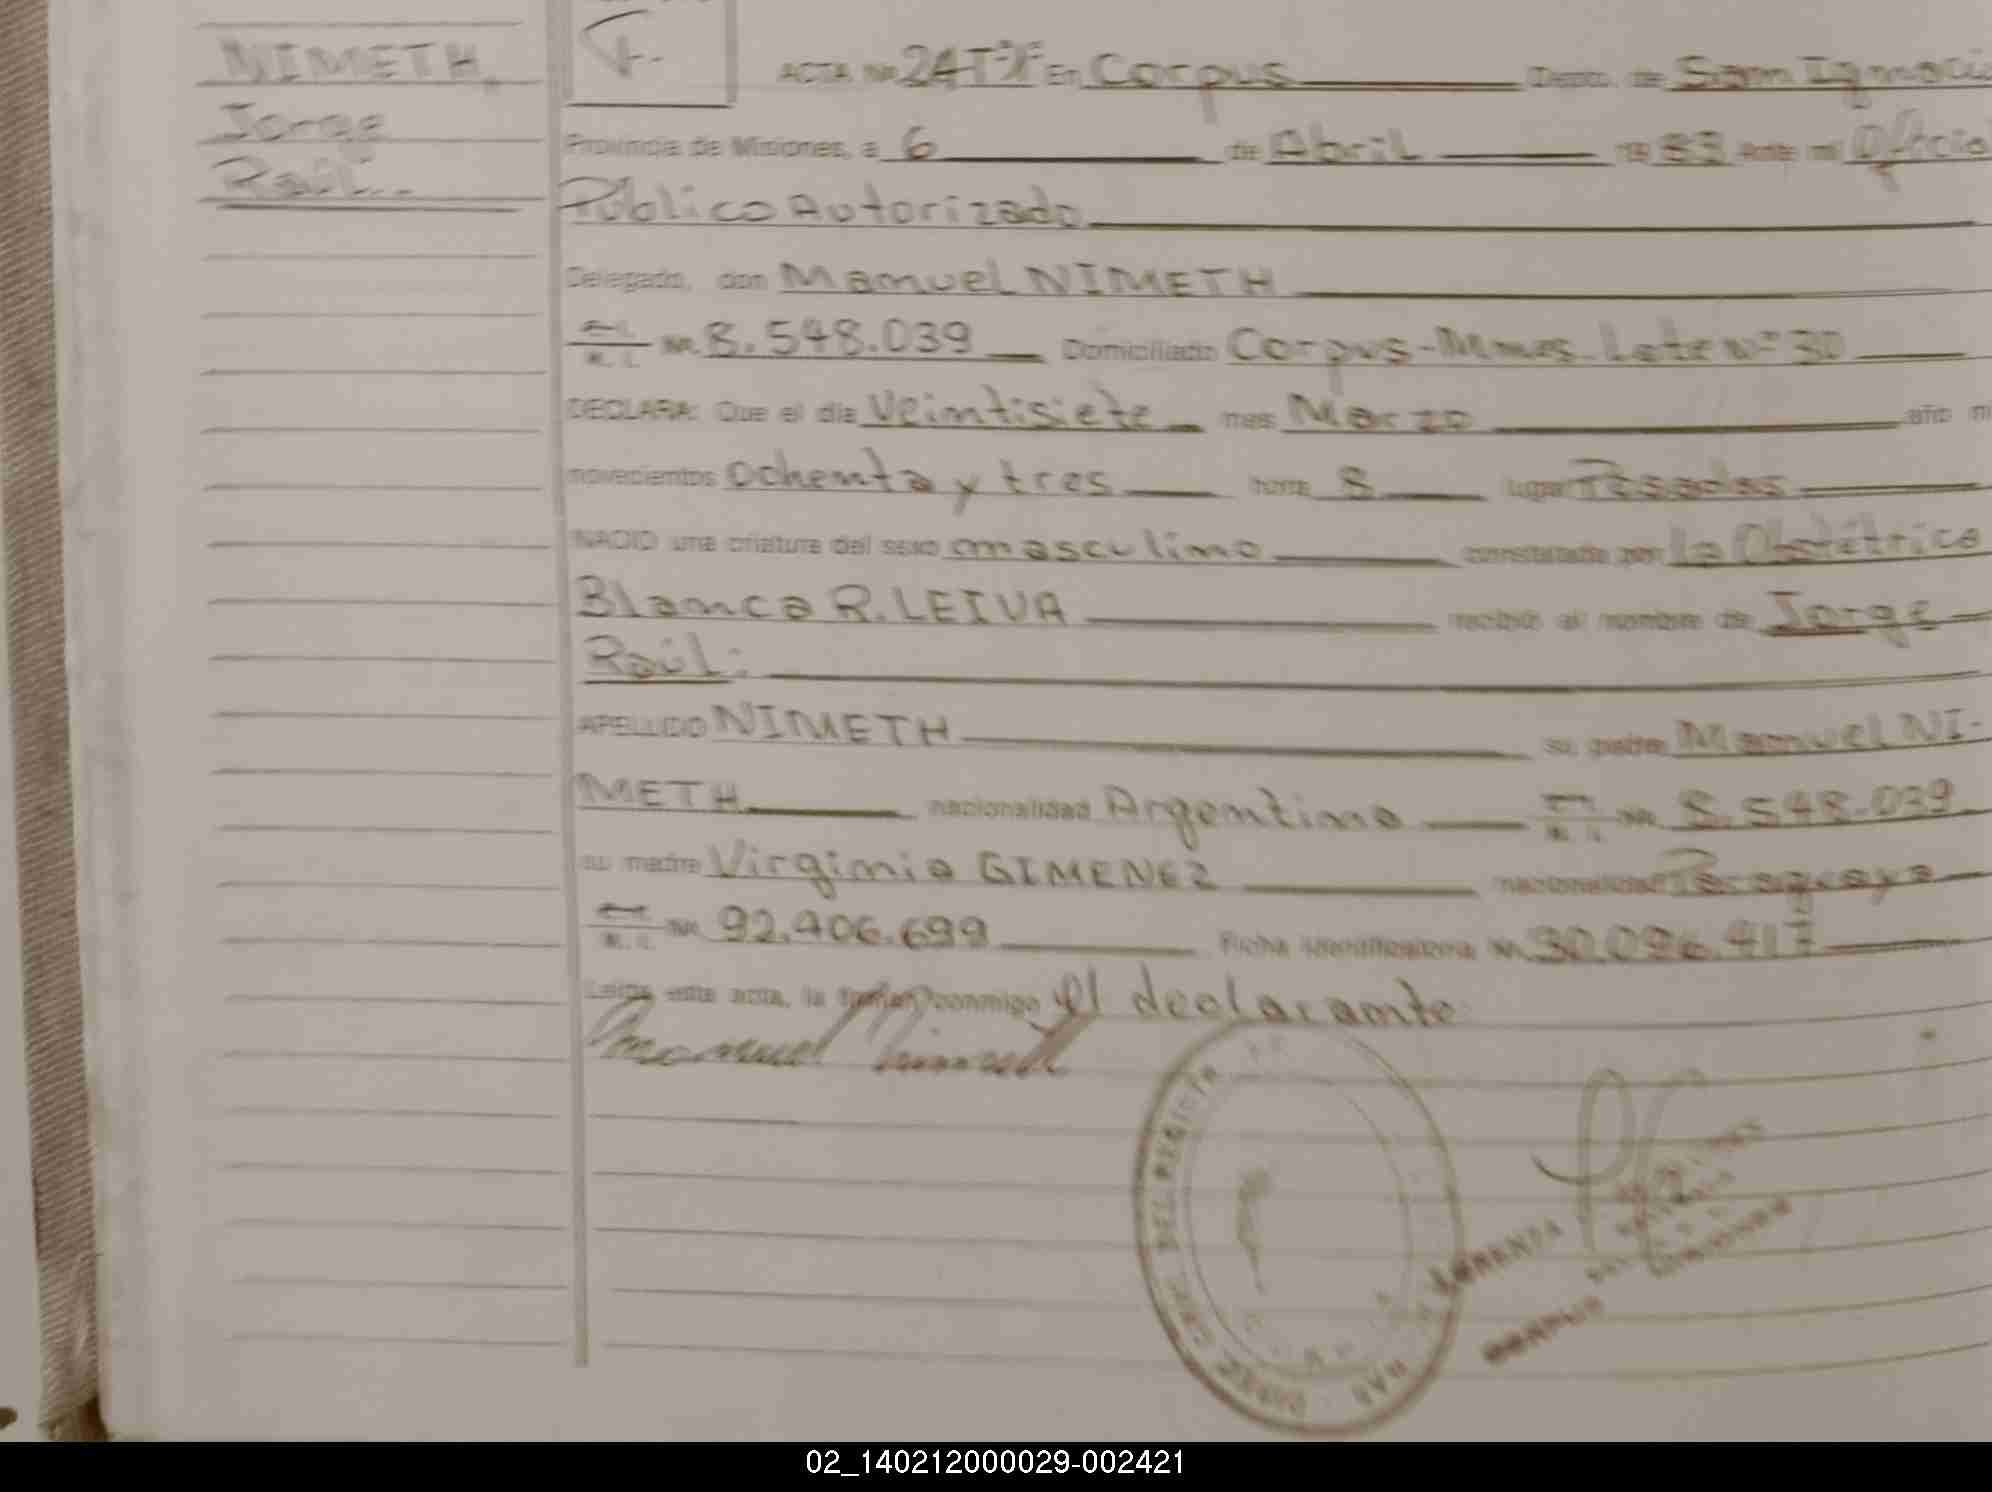 NIMETH,
Jorge
Raúl..
ACTA Nº 24 Tº 1º En Corpus Depto. de San Ignacio
Provincia de Misiones, a 6 de Abril 19 83 Ante mi Oficial
Público Autorizado
Delegado, don Manuel NIMETH
M. I. Nº 8.548.039 Domiciliado Corpus-Mnes. Lote Nº 30
DECLARA: Que el día Veintisiete mes Marzo año m
novecientos ochenta y tres hora 8 lugar Posadas
NACIO una criatura del sexo masculino constatado por la Obstétrica
Blanca R. LEIVA recibió el nombre de Jorge
Raúl:
APELLIDO NIMETH su padre Manuel NI-
METH nacionalidad Argentino M. I. Nº 8.548.039
su madre Virginia GIMENEZ nacionalidad Paraguaya
M. I. Nº 92.406.699 Ficha identificatoria Nº 30.096.417
Leída esta acta, la firman conmigo el declarante
Manuel Nimeth
DEL REGISTRO
CORPUS
02_140212000029-002421